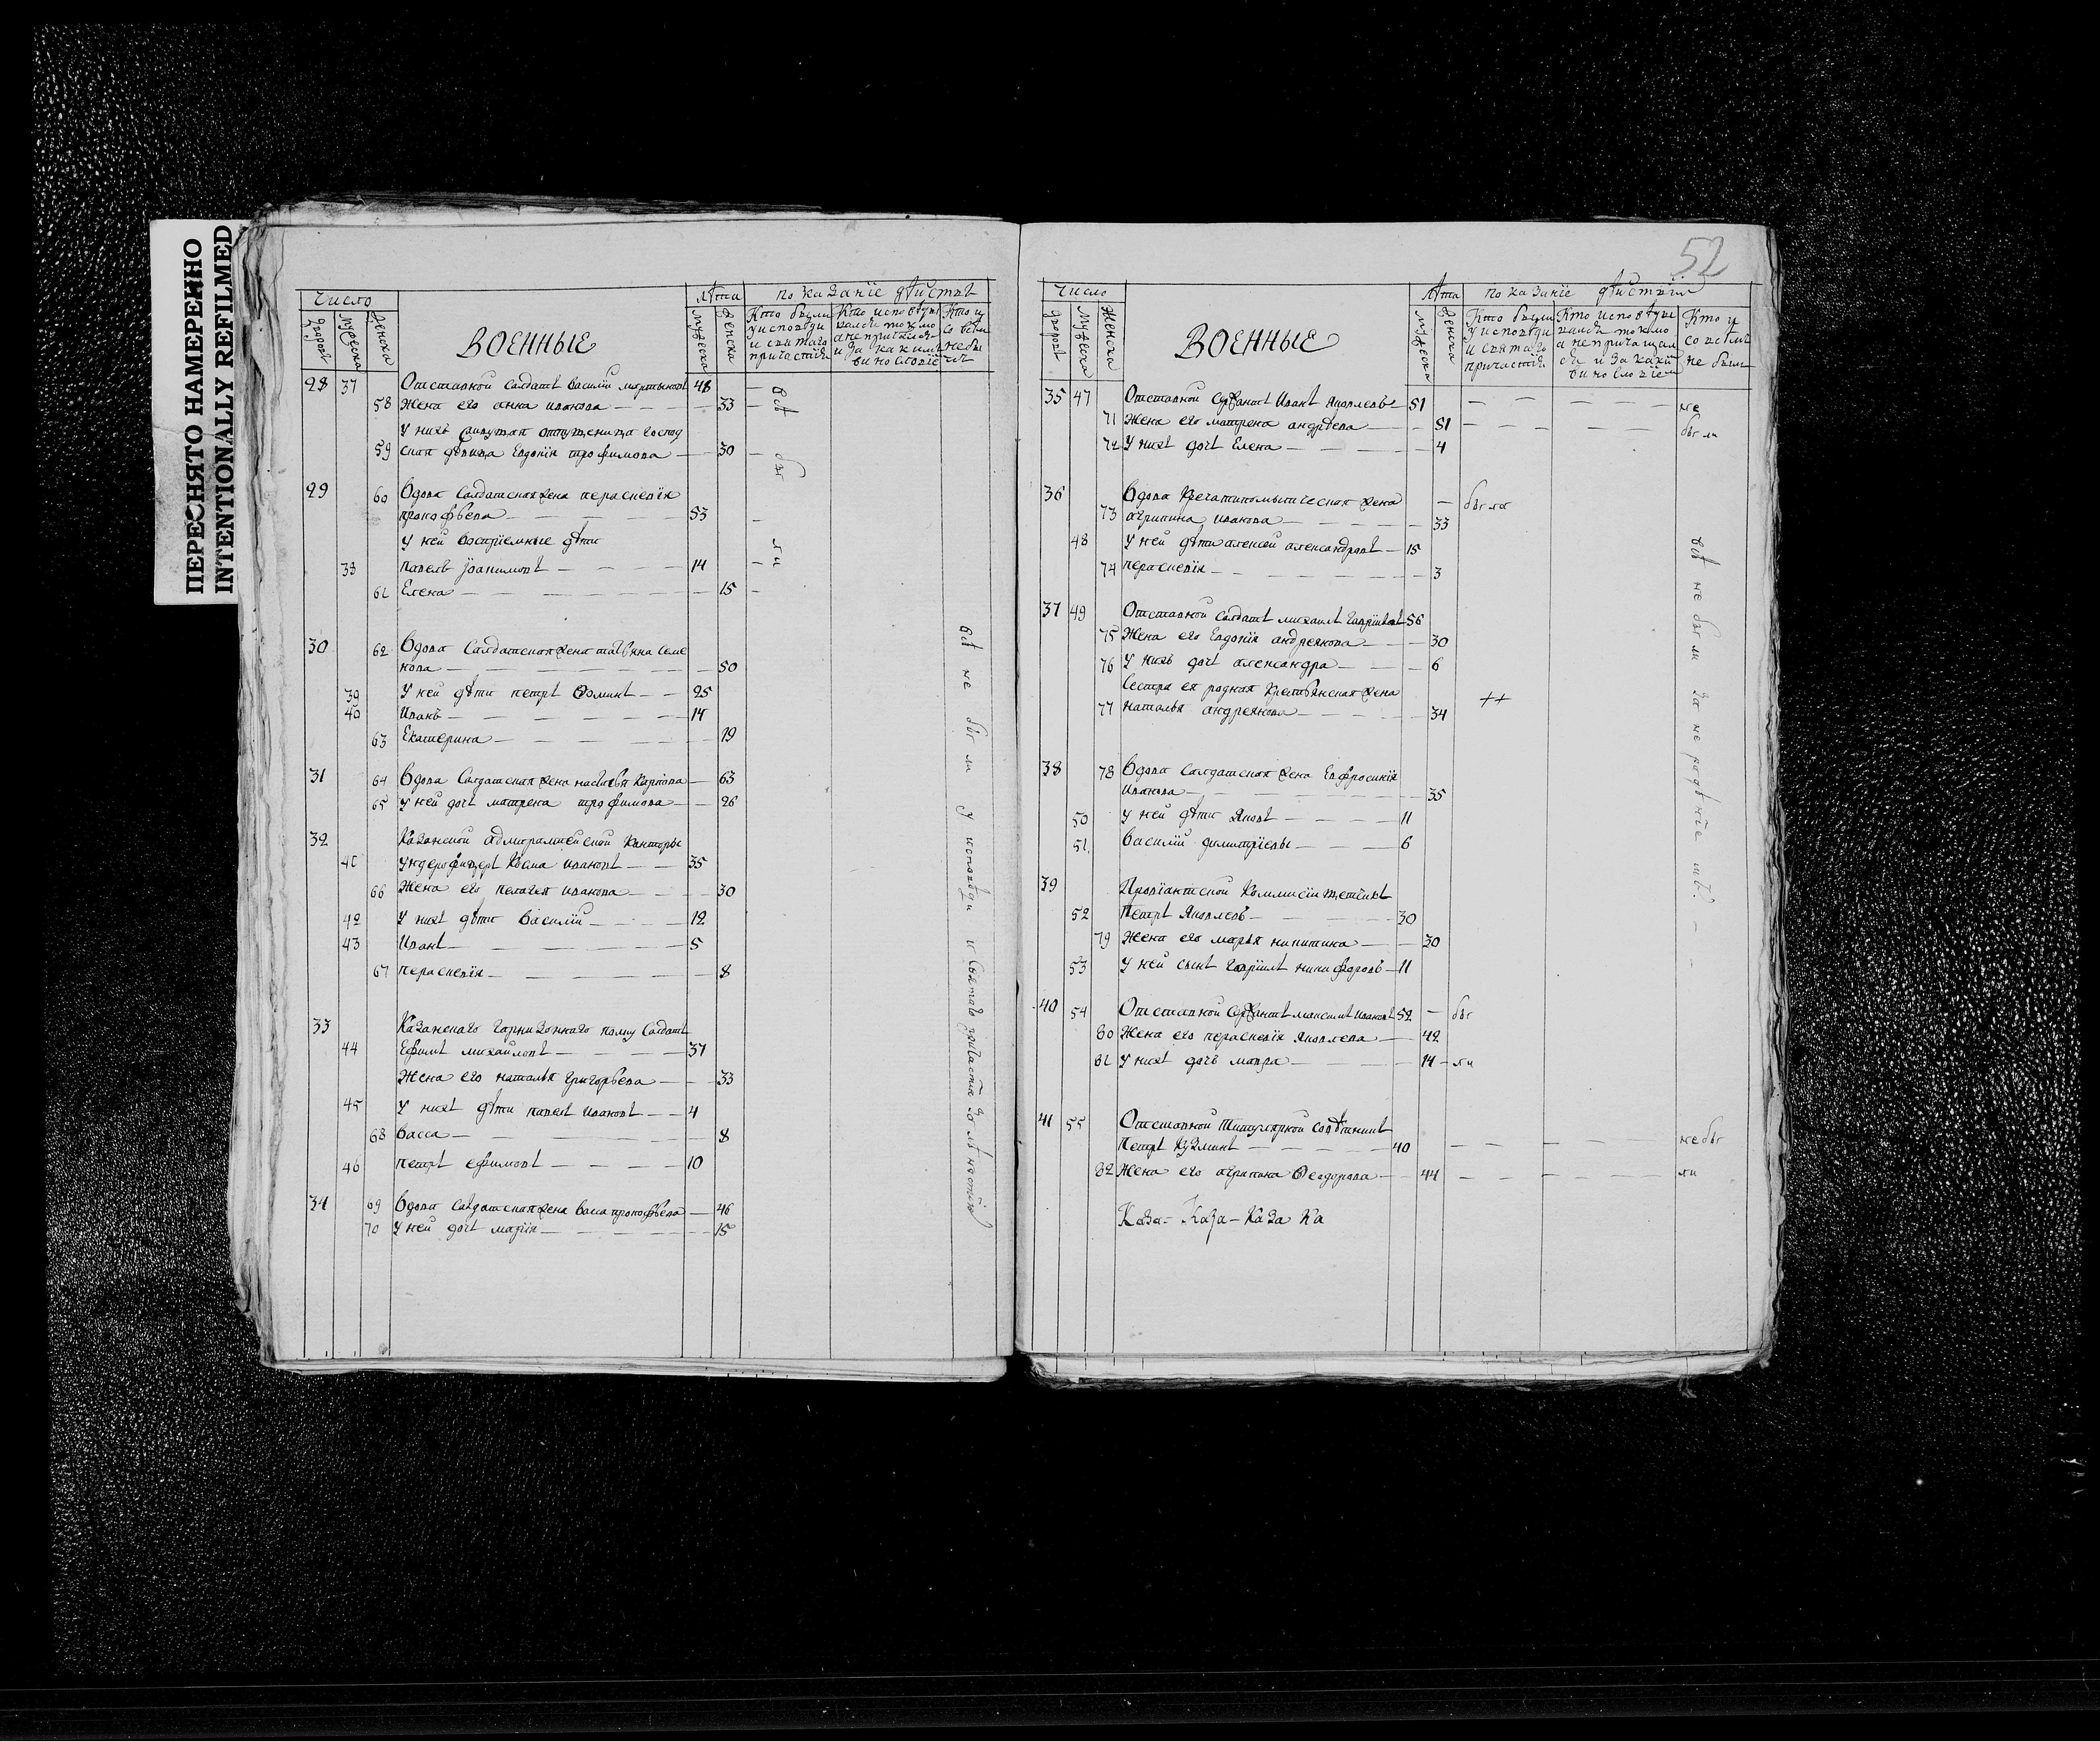 ПЕРЕСНЯТО НАМЕРЕННО
INTENTIONALLY REFILMED
Число
дворовъ Мужеска Женска
ВОЕННЫЕ
лѣта
Мужеска Женска
показанїе дѣиствъ
Кто были у исповѣди и святаго причастїя
Кто исповѣды вался токмо а не причащался и за какимъ винословїемъ
Кто и со всѣмъ не былъ
28 37 Отставной солдатъ василїй мартыновъ 48
58 Жена его анна иванова 33
У нихъ
59 ская дѣвица Евдокїя трофимова 30
всѣ бы ли
29 60 Вдова Солдатская жена параскевїя
прокофьева 53
У ней воспрїемные дѣти
38 павелъ 14
61 Елена 15
30 62 Вдова Салдатская жена татьяна Семе
нова 50
39 У ней дѣти петръ Фоминъ 25
40 Иванъ 14
63 Екатерина 19
31 64 Вдова Салдатская жена настасья Карпова 63
65 У ней дочь матрена трофимова 26
32 Казанской адмиралтейской Канторы
41 ундерофицеръ Козма ивановъ 35
66 Жена его пелагея иванова 30
42 У нихъ дѣти василїй 12
43 Иванъ 5
67 параскевїя 8
33 Казанскаго гарнизоннаго полку Салдатъ
44 Ефимъ михайловъ 37
Жена его наталья григорьева 33
45 У нихъ дѣти павелъ ивановъ 4
68 васса 8
46 петръ ефимовъ 10
34 69 Вдова Салдатская жена васса прокофьева 46
70 У ней дочь марїя 15
всѣ не бы ли у исповѣди и святаго причастїя за лѣностїю
52
Число
дворовъ Мужеска Женска
ВОЕННЫЕ
лѣта
Мужеска Женска
показанїе дѣиствїи
Кто были у исповѣди и святаго причастїя
Кто исповѣды вался токмо а не причащал ся и за какимъ винословїемъ
Кто и со всѣмъ не былъ
35 47 Отставной Сержантъ Иванъ Яковлевъ 51 не
71 Жена его матрена андреева 51 бы ли
72 У нихъ дочь Елена 4
36 Вдова жена бы ла
73 агрипина иванова 33
48 У ней дѣти алексей александровъ 15
74 параскевїя 3
37 49 Отставной Салдатъ михаилъ гаврїиловъ 56
75 Жена его Евдокїя андреянова 30
76 У нихъ дочь александра 6
Сестра ея родная Крестьянская жена
77 наталья андреянова 34
38 78 Вдова Салдатская жена Евфросинїя
Иванова 35
50 У ней дѣти Яковъ 11
51 Василїй димитрїевы 6
39 Провїантской Коммисїи
52 Петръ Яковлевъ 30
79 Жена его марья никитина 30
53 У ней сынъ гаврїилъ никифоровъ 11
всѣ не бы ли за не радѣнїемъ
40 54 Отставной Сержантъ максимъ ивановъ 52 бы
80 Жена его параскевїя Яковлева 42
81 У нихъ дочь мавра 14 ли
41 55 Отставной Титулярной Совѣтникъ
Петръ Кузминъ 40 не бы
82 Жена его агрипина Феодорова 44 ли
Каза- Каза- Каза Ка